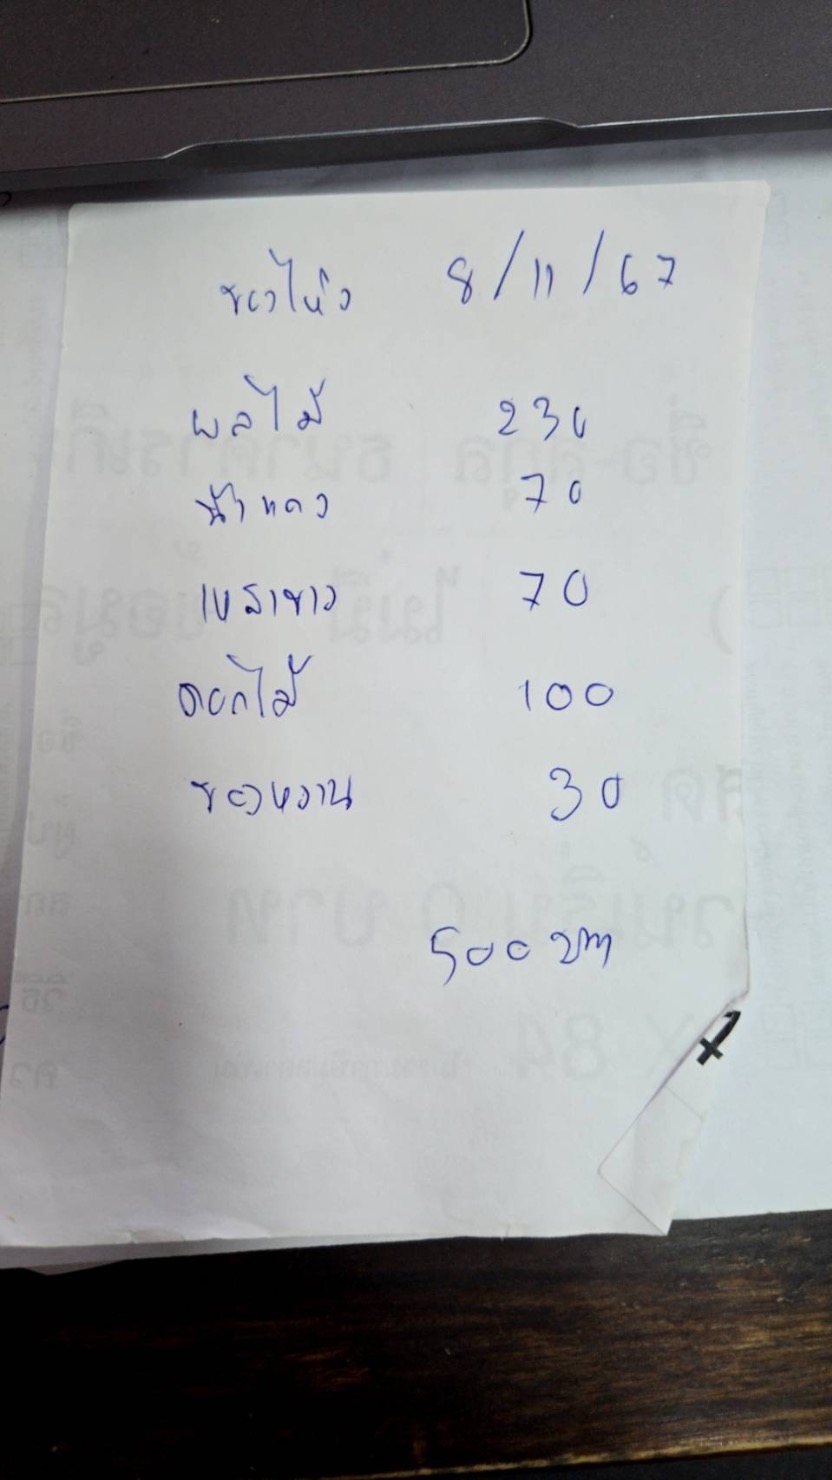 ของไหว้ 8/11/67
ผลไม้ 230
น้ำแดง 70
เหล้าขาว 70
ดอกไม้ 100
ของหวาน 30
500 บาท